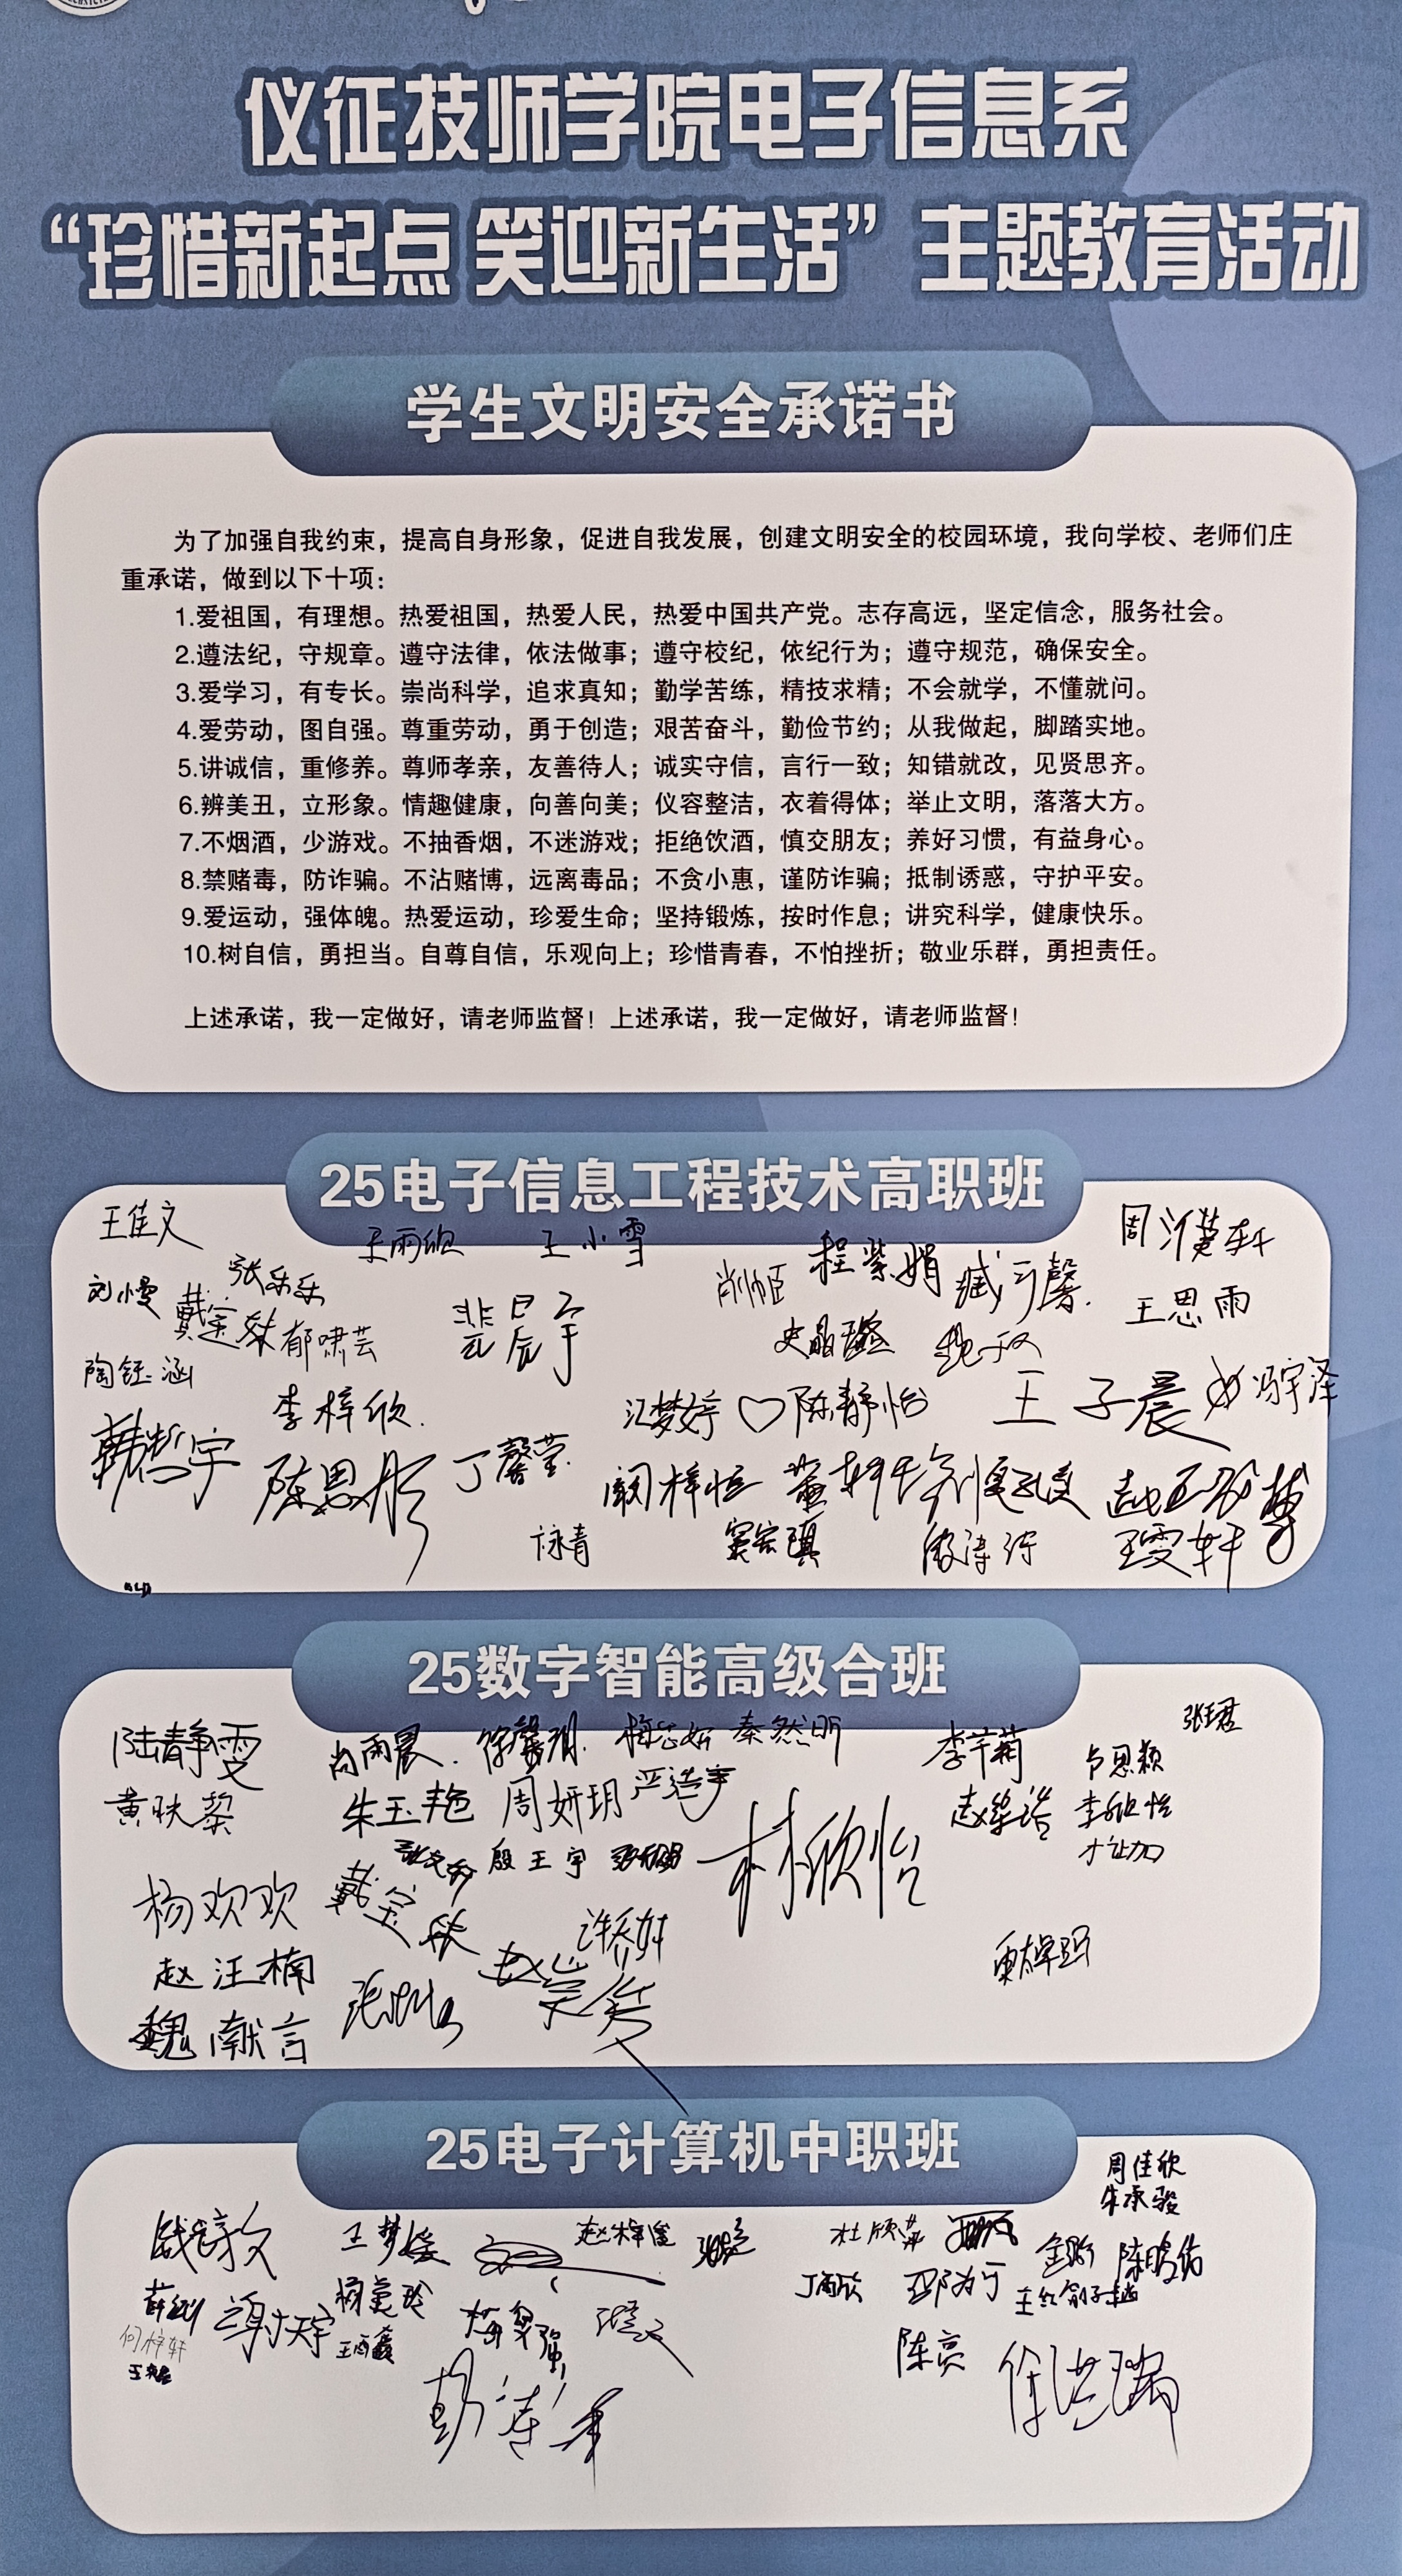 仪征技师学院电子信息系
“珍惜新起点 笑迎新生活” 主题教育活动
学生文明安全承诺书
为了加强自我约束，提高自身形象，促进自我发展，创建文明安全的校园环境，我向学校、老师们庄
重承诺，做到以下十项：
1.爱祖国，有理想。热爱祖国，热爱人民，热爱中国共产党。志存高远，坚定信念，服务社会。
2.遵法纪，守规章。遵守法律，依法做事；遵守校纪，依纪行为；遵守规范，确保安全。
3.爱学习，有专长。崇尚科学，追求真知；勤学苦练，精技求精；不会就学，不懂就问。
4.爱劳动，图自强。尊重劳动，勇于创造；艰苦奋斗，勤俭节约；从我做起，脚踏实地。
5.讲诚信，重修养。尊师孝亲，友善待人；诚实守信，言行一致；知错就改，见贤思齐。
6.辨美丑，立形象。情趣健康，向善向美；仪容整洁，衣着得体；举止文明，落落大方。
7.不烟酒，少游戏。不抽香烟，不迷游戏；拒绝饮酒，慎交朋友；养好习惯，有益身心。
8.禁赌毒，防诈骗。不沾赌博，远离毒品；不贪小惠，谨防诈骗；抵制诱惑，守护平安。
9.爱运动，强体魄。热爱运动，珍爱生命；坚持锻炼，按时作息；讲究科学，健康快乐。
10.树自信，勇担当。自尊自信，乐观向上；珍惜青春，不怕挫折；敬业乐群，勇担责任。
上述承诺，我一定做好，请老师监督！上述承诺，我一定做好，请老师监督！
25电子信息工程技术高职班
王佳文
王雨欣 王小雪
程紫娟
刘慢 张乐乐
王思雨
郁啸芸
陶钰涵
李梓欣
汪梦婷 陈静怡 王子晨 冯宇泽
韩哲宇 陈思彤 丁馨莹
阚梓恒
咏青
王雯轩
25数字智能高级合班
陆静雯 尚雨晨 秦然昕 李芊菊
朱玉艳 周妍玥 严浩宇 卢思颖
殷王宇 林欣怡 李欣怡
杨欢欢 戴宝欣 许乔妹
赵汪楠
魏献言
25电子计算机中职班
周佳欣
朱承骏
王梦媛 赵梓俊 杜欣苹
谢天宇 丁雨欣 邵为于
何梓轩
陈亮 徐浩瑞